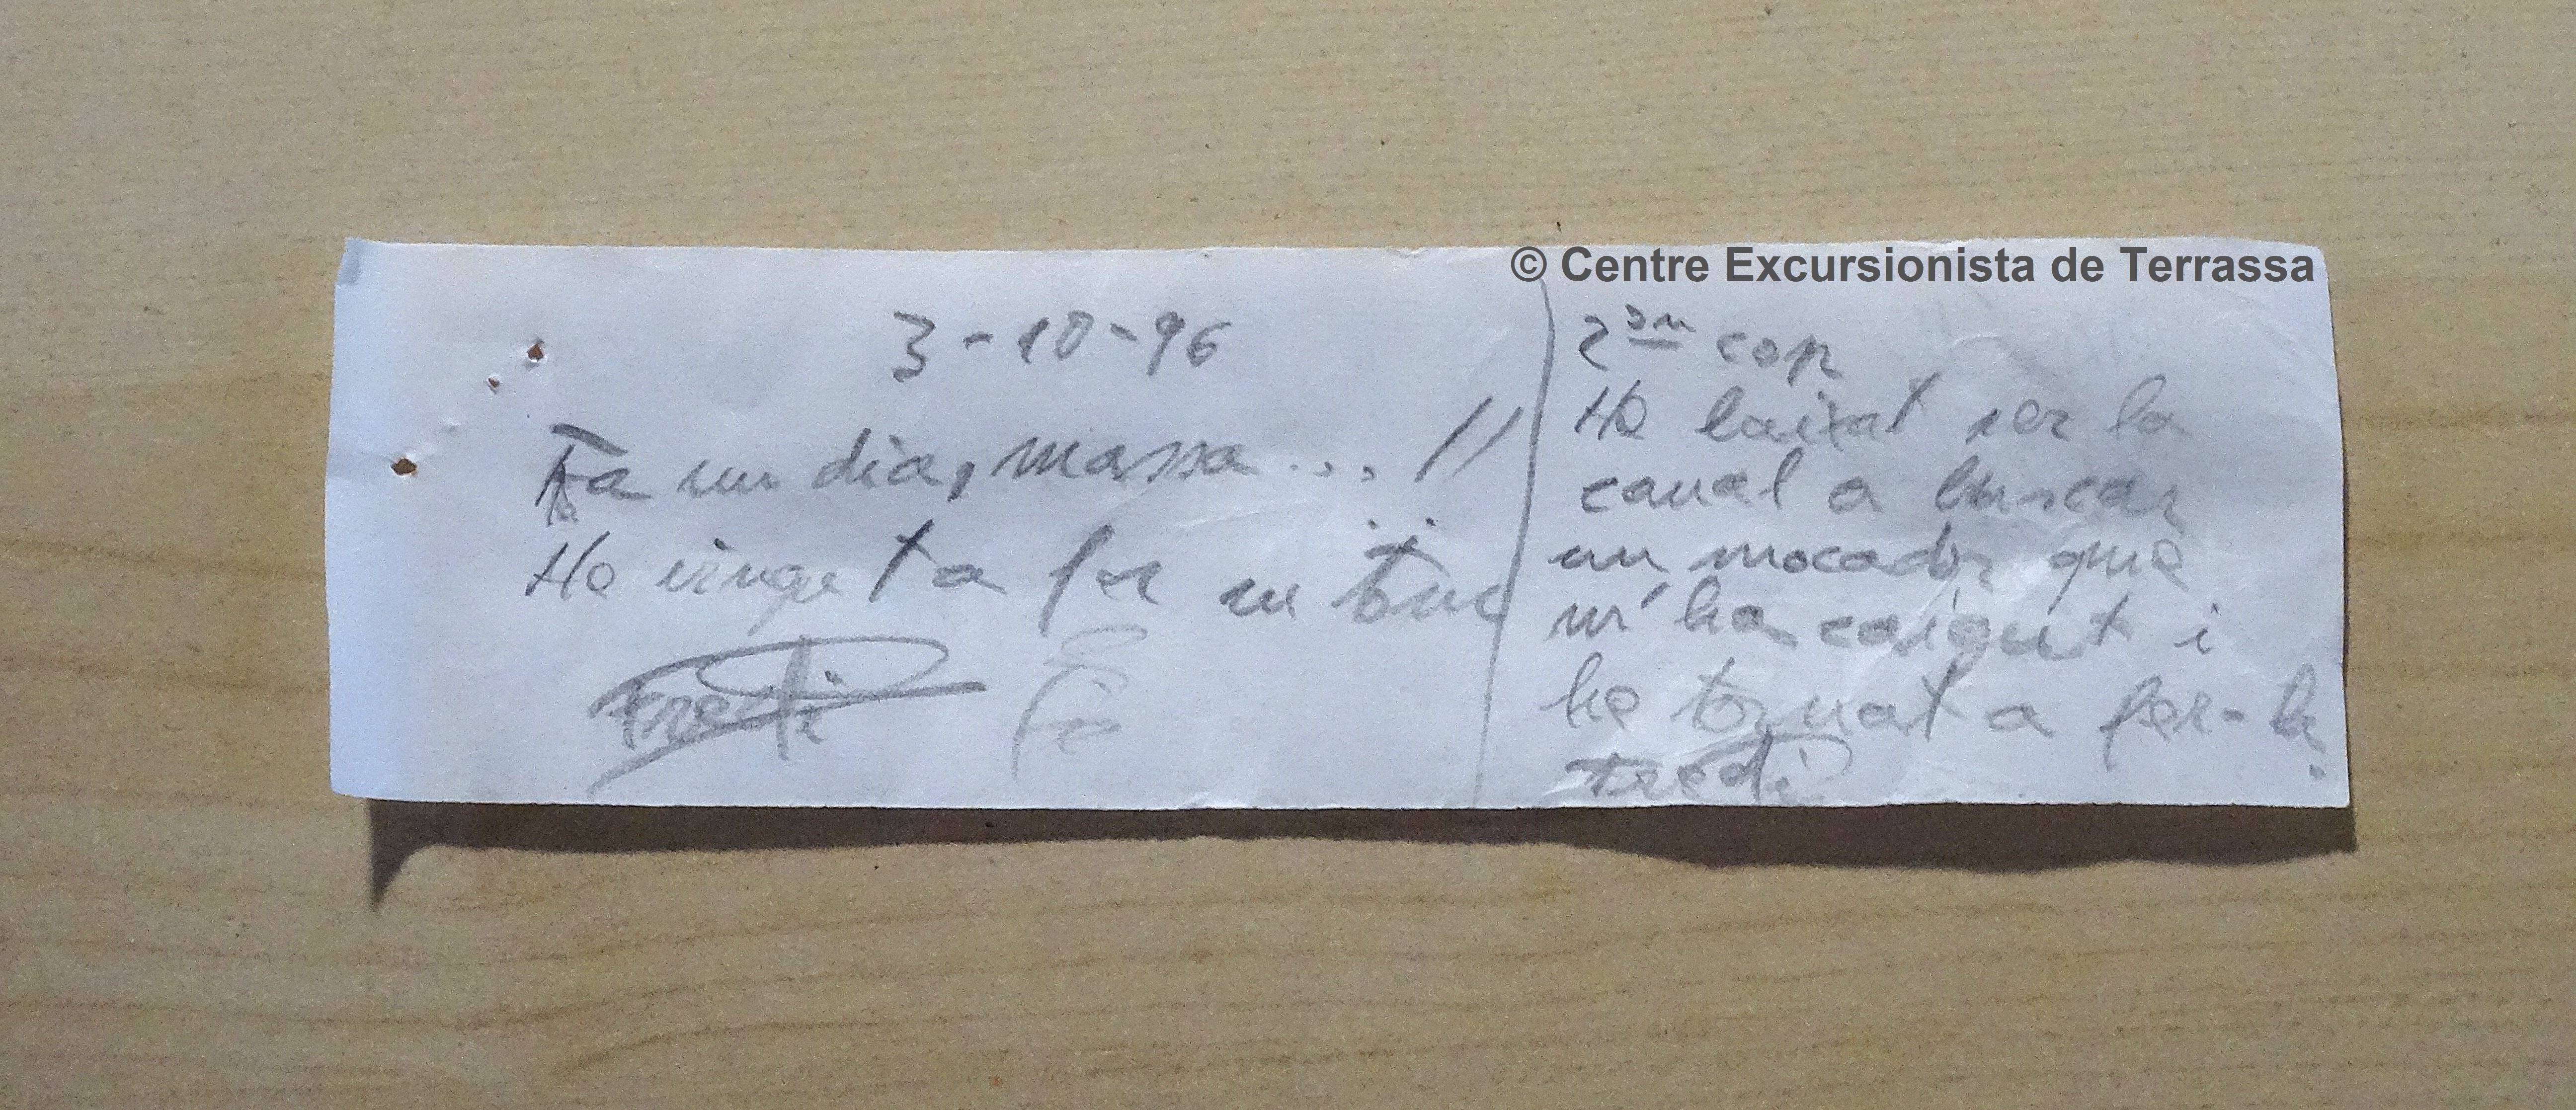 © Centre Excursionista de Terrassa
3-10-96
Fa un dia, massa... !!
He vingut a fer un
Fredi
2on cop
He baixat per la
canal a buscar
un mocador que
m'ha caigut i
he tornat a fer-la.
Fredi